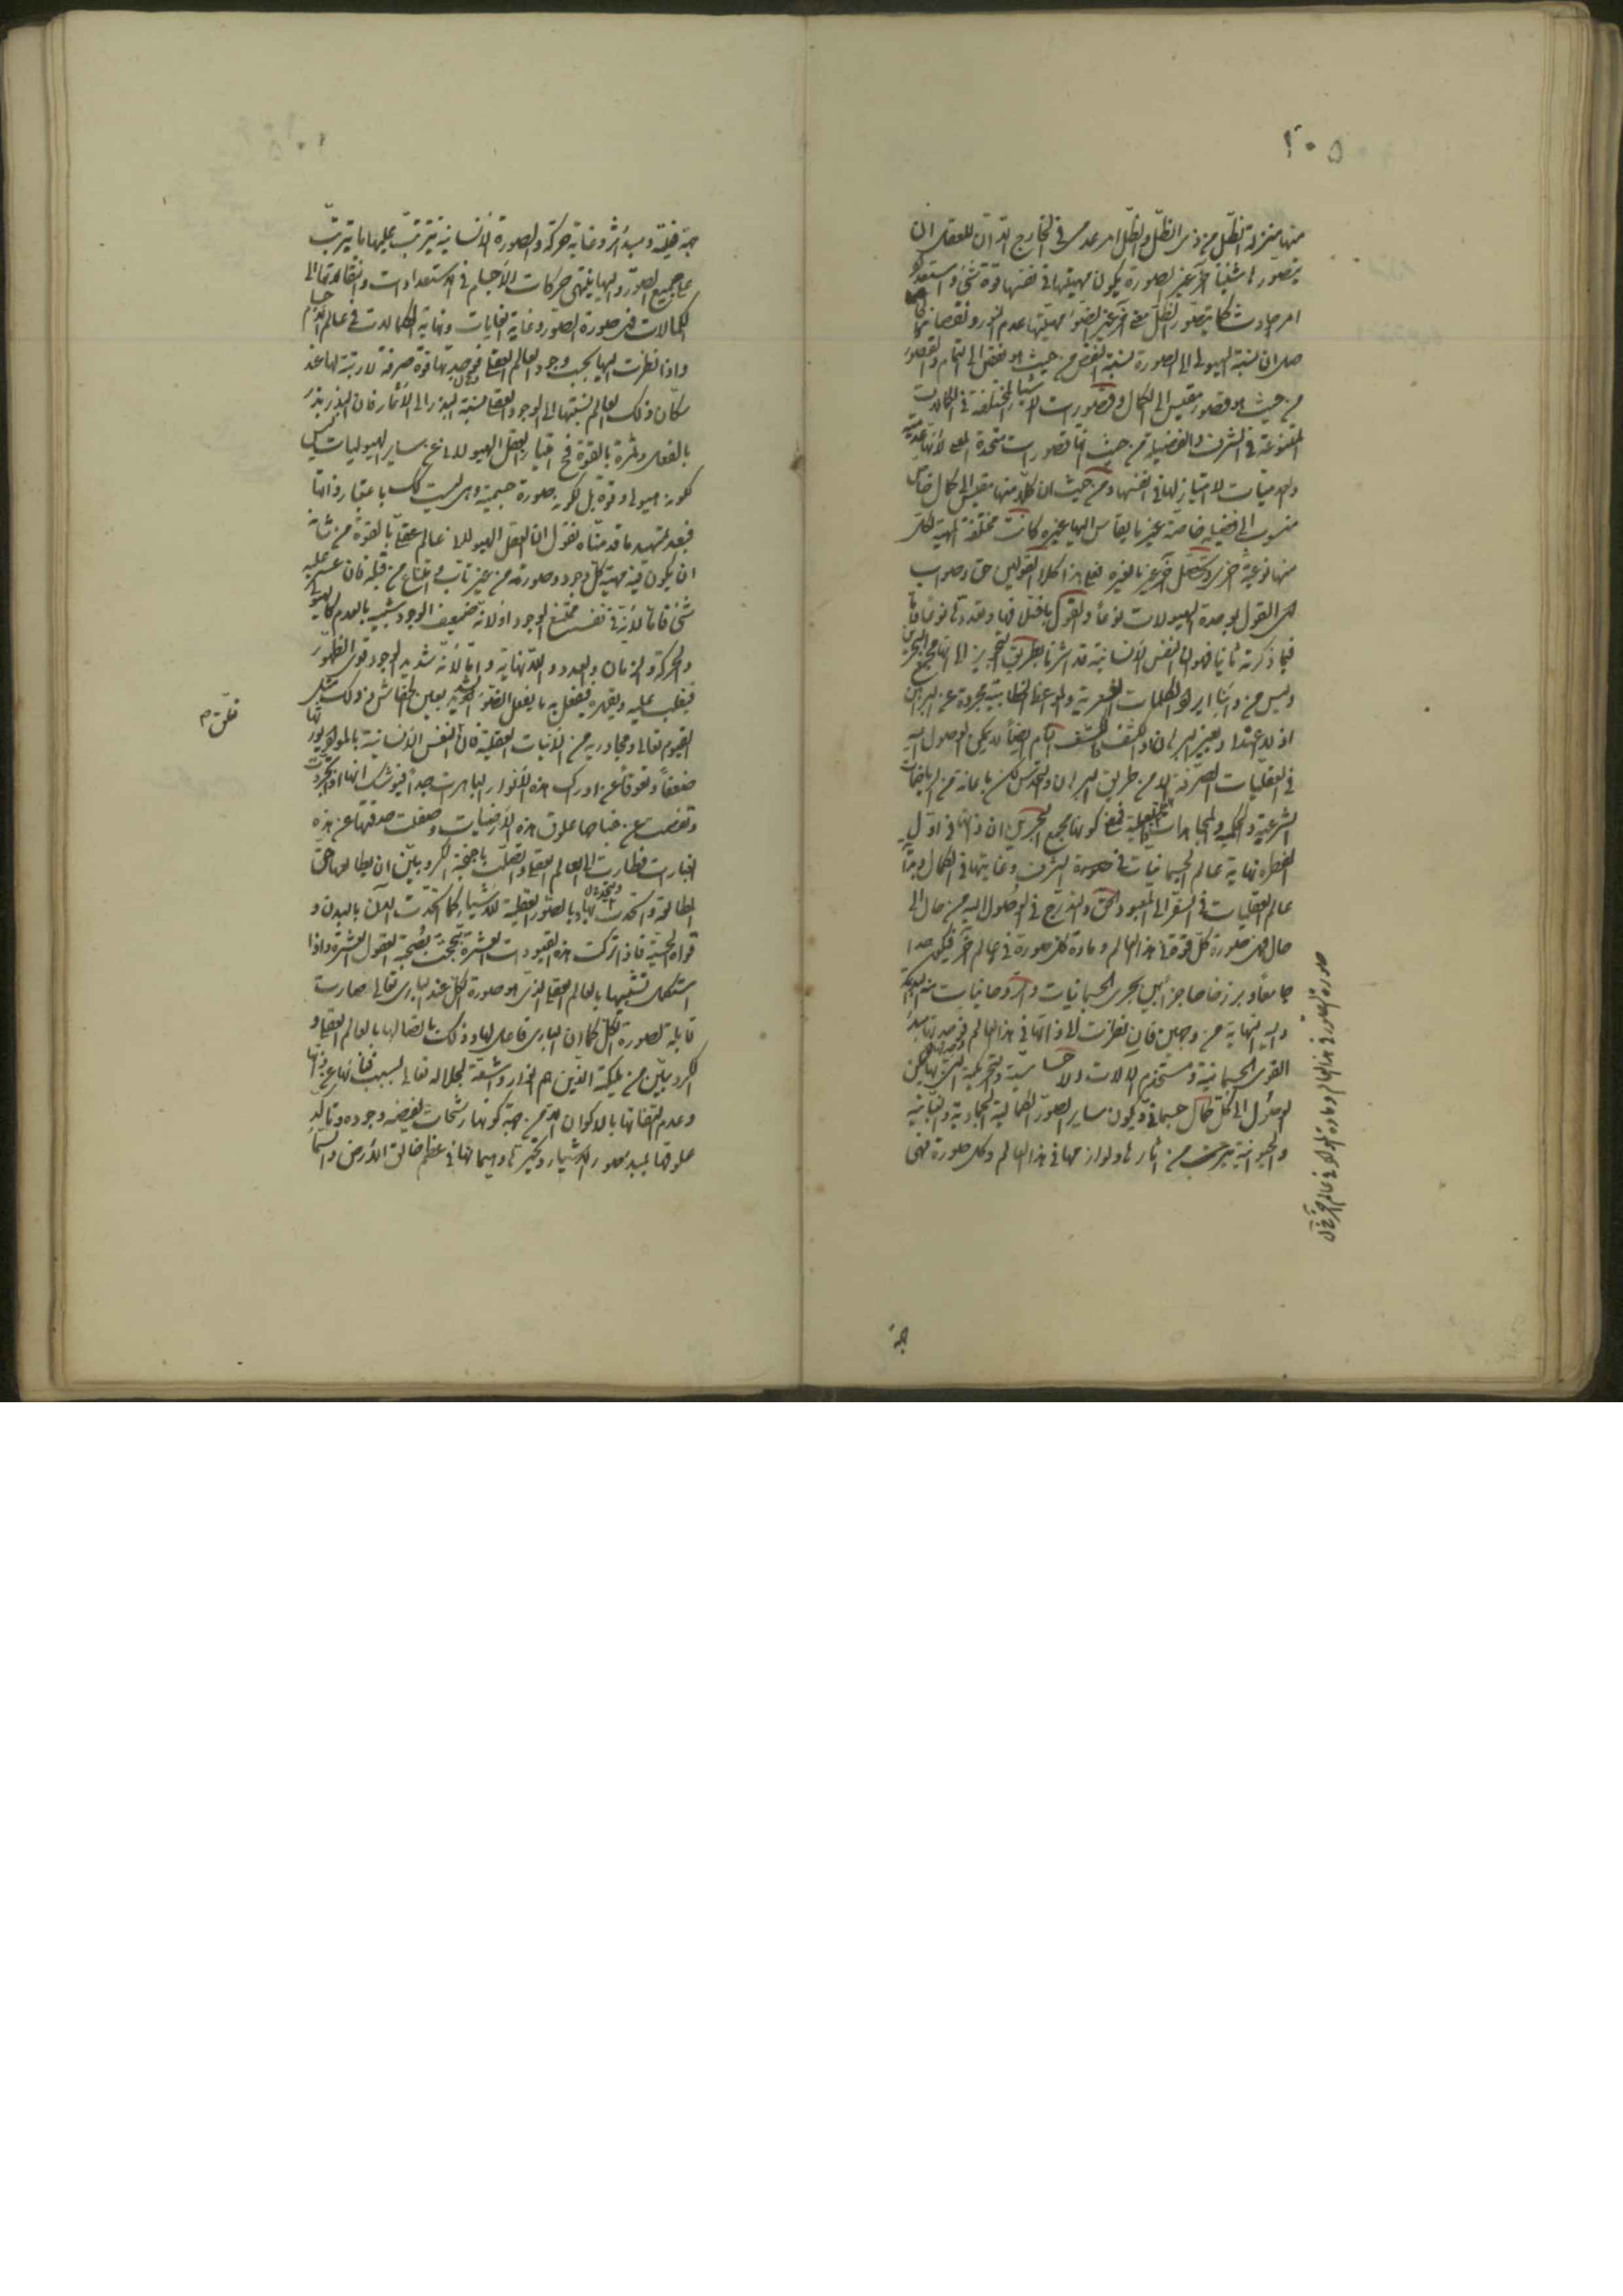 ١٠٥
منها منزلة الظل من ذى الظل والظل امر عدمى فى الخارج الا ان للعقل ان
يتصور لها شيئا آخر غير الصورة يكون مهيتها فى نفسها قوة شئ واستعداد
امر حادث كما يتصور للظل معنى آخر غير الضوء مهيتها عدم النور ونقصانه
صل ان نسبة الهيولى الى الصورة نسبة النقص من حيث هو نقص الى التمام والقصور
من حيث هو قصور مقيس الى الكمال وقصورات الاشياء المختلفة فى الكمالات
المتنوعة فى الشرف والفضيلة من حيث انها قصورات متحدة المعنى لانها عدمية
والعدميات لا امتياز لها فى انفسها ومن حيث ان كلا منها مقيس الى كمال خاص
منسوب الى فضيلة خاصة غير ما يقاس اليها غيره كانت مختلفة المهية لكل
منها نوعية اخرى وتحصل آخر غير ما لغيره فعلى هذا كلا القولين حق وصواب
اى القول بوحدة الهيولات نوعا والقول باختلافها وتعددها نوعا واما
فيما ذكرته ثانيا فهو ان النفس الانسانية قد اشرنا بطريق التحرير الى انها مجمع البحرين
وليس من دأبنا ايراد الكلمات الشعرية والمواعظ الخطابية مجردة عن البرهان
اذ لا اعتداد بغير البرهان او الكشف والكشف التام ايضا لا يمكن الوصول اليه
فى العقليات الصرفة الا من طريق البرهان والحدس لكن باعانة من الرياضات
الشرعية والحكمية والمجاهدات العلمية والعملية فمعنى كونها مجمع البحرين ان ذاتها فى اول
الفطرة نهاية عالم الجسمانيات فى الشرف وغايتها فى الكمال وبداية
عالم العقليات فى السفر الى المعبود الحق والتدرج فى الوصول اليه من حال الى
حال فهى صورة كل قوة فى هذا العالم ومادة كل صورة فى عالم آخر فيكون حدا
جامعا وبرزخا حاجزا بين بحرى الجسمانيات والروحانيات منه البداية
واليه النهاية من وجهين فان نظرت الى ذاتها فى هذا العالم فوجدتها مبدأ
القوى الجسمانية ومستخدم الآلات الاحساسية والتحريكية التى بها يمكن
الوصول الى كل كمال جسمانى ويكون ساير الصور الكمالية الجمادية والنباتية
والحيوانية من آثارها ولوازمها فى هذا العالم وكل صورة فهى
صورة الصور فى هذا العالم ومادة المواد فى عالم آخر
جهة
جهة فعلية ومبدأ اثر وغاية حركة والصورة الانسانية يترتب عليها ما يترتب
على جميع الصور واليها ينتهى حركات الاجسام فى الاستعدادات وانتقالاتها الى
الكمالات فهى صورة الصور وغاية الغايات ونهاية الكمالات فى عالم الاجسام
واذا نظرت اليها بحسب وجود العالم العقلى فوجدتها قوة صرفة لا رتبة لها عند
سكان ذلك العالم نسبتها الى الوجود العقلى نسبة البذر الى الاثمار فان البذر بذر
بالفعل وثمرة بالقوة فح امتياز العقل الهيولانى عن ساير الهيوليات ليس
لكونه هيولى وقوة بل لكونه صورة جسمية وهى ليست كك باعتبار ذاتها
فبعد تمهيد ما قدمناه نقول ان العقل الهيولانى عالم عقلى بالقوة من شانه
ان يكون فيه مهية كل موجود وصورته من غير تأب وامتناع من قبله فان عسر عليه
شئ فاما لانه فى نفسه ممتنع الوجود او لانه ضعيف الوجود شبيه بالعدم كالهيولى
والحركة والزمان والعدد واللانهاية واما لانه شديد الوجود قوى الظهور
فيغلب عليه ويقهره فيفعل به ما يفعل الضوء الشديد بعين الخفاش وذلك مثل
القيوم تعالى ومجاوريه من الانيات العقلية فان النفس الانسانية بالمواد يورثها
ضعفا وتعوقا عن ادراك هذه الانوار الباهرات جدا فيوشك انها اذا تجردت
ونفضت عن جناحها علوق هذه الارضيات وصقلت حدقتها عن هذه
الغبارات فطارت الى العالم العقلى واتصلت باجنحة الكروبيين ان يطالعها حق
المطالعة واتحدت بها وبالصور العقلية للاشياء كما اتحدت الآن بالبدن و
قواه الحسية فاذا تركت هذه القيودات العشرة نجحت بصحبة العقول العشرة واذا
استكمل تشبهها بالعالم العقلى الذى هو صورة الكل عند البارى تعالى صارت
قابلة لصورة الكل كما ان البارى فاعل لها وذلك باتصالها بالعالم العقلى و
الكروبيين من المليكة الذين هم انوار واشعة لجلاله تعالى بسبب فنائها عن ذاتها
وعدم التفاتها بالاكوان الا من جهة كونها رشحات لفيضه وجوده وتاله
عشقها لمبدع صور الاشياء وتحيرها وهيمانها فى عظم خالق الارض والسماء